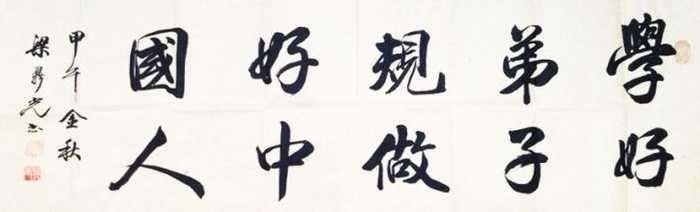 學好
弟子
規做
好中
國人
甲午金秋
梁
光